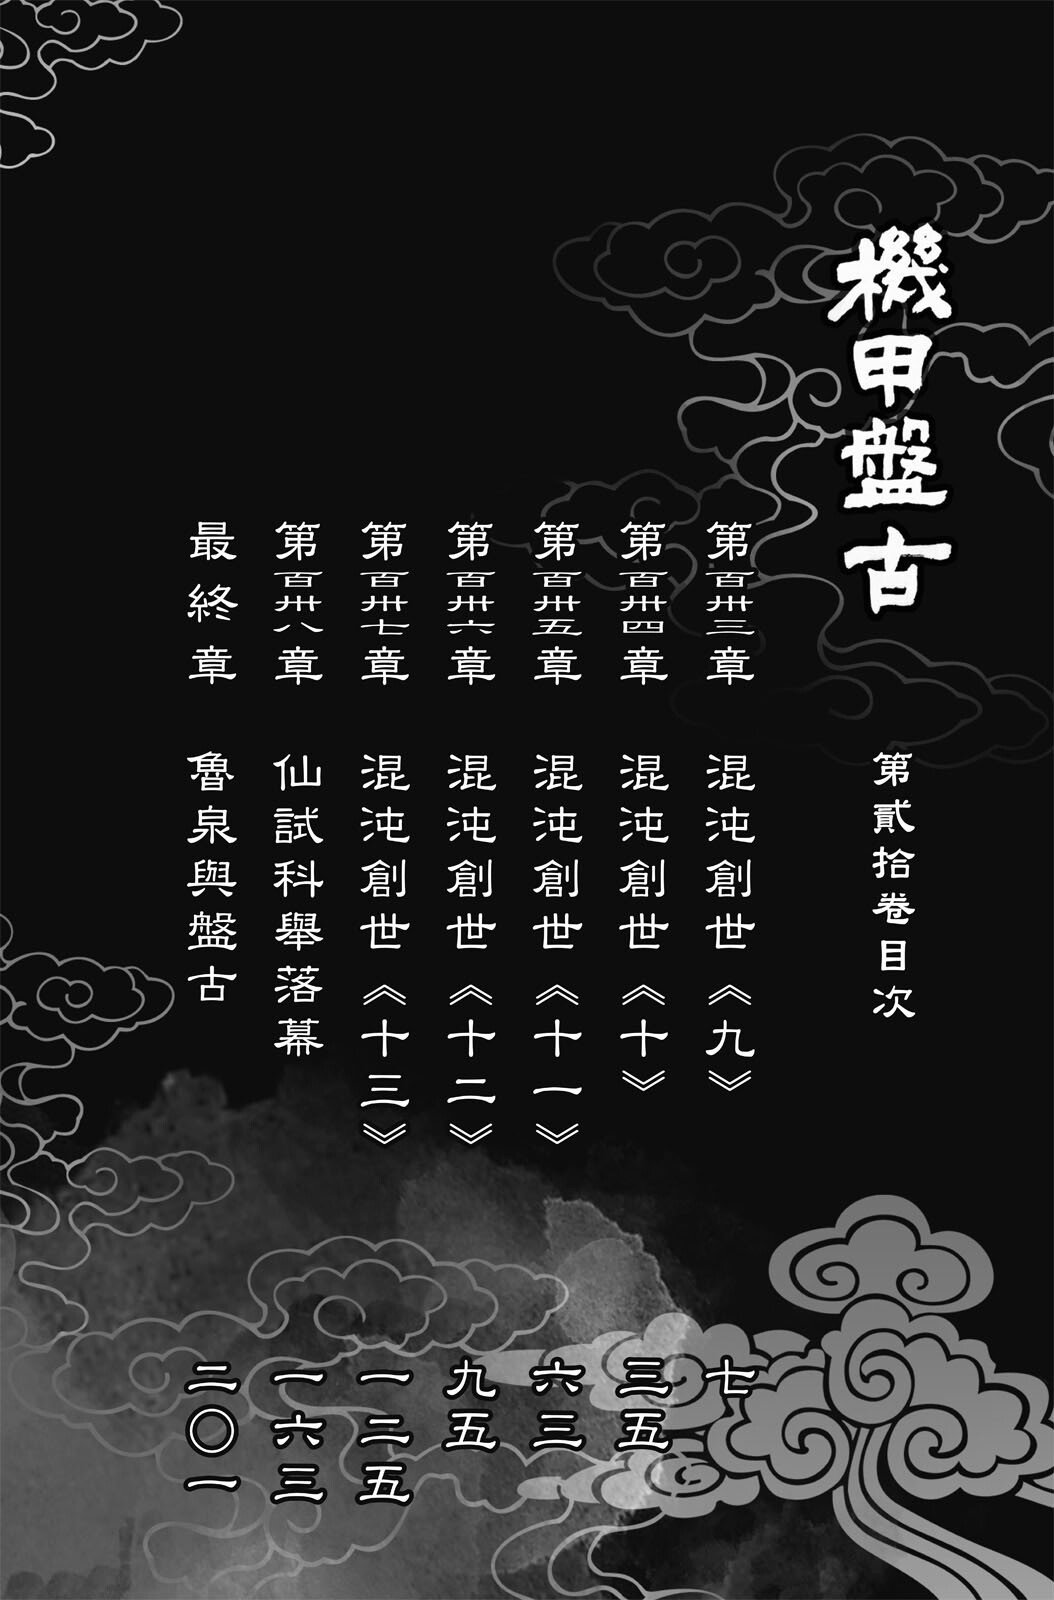 機甲盤古
第貳拾卷目次
第百卅三章 混沌創世《九》 七
第百卅四章 混沌創世《十》 三五
第百卅五章 混沌創世《十一》 六三
第百卅六章 混沌創世《十二》 九五
第百卅七章 混沌創世《十三》 一二五
第百卅八章 仙試科舉落幕 一六三
最終章 魯泉與盤古 二〇一